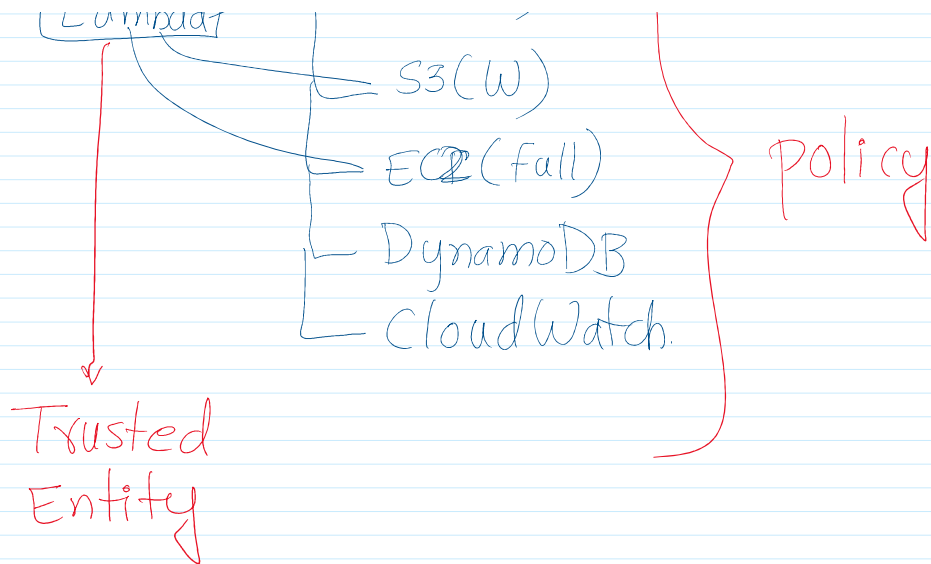 S3(W)
EC2(full)
DynamoDB
CloudWatch.
policy
Trusted
Entity